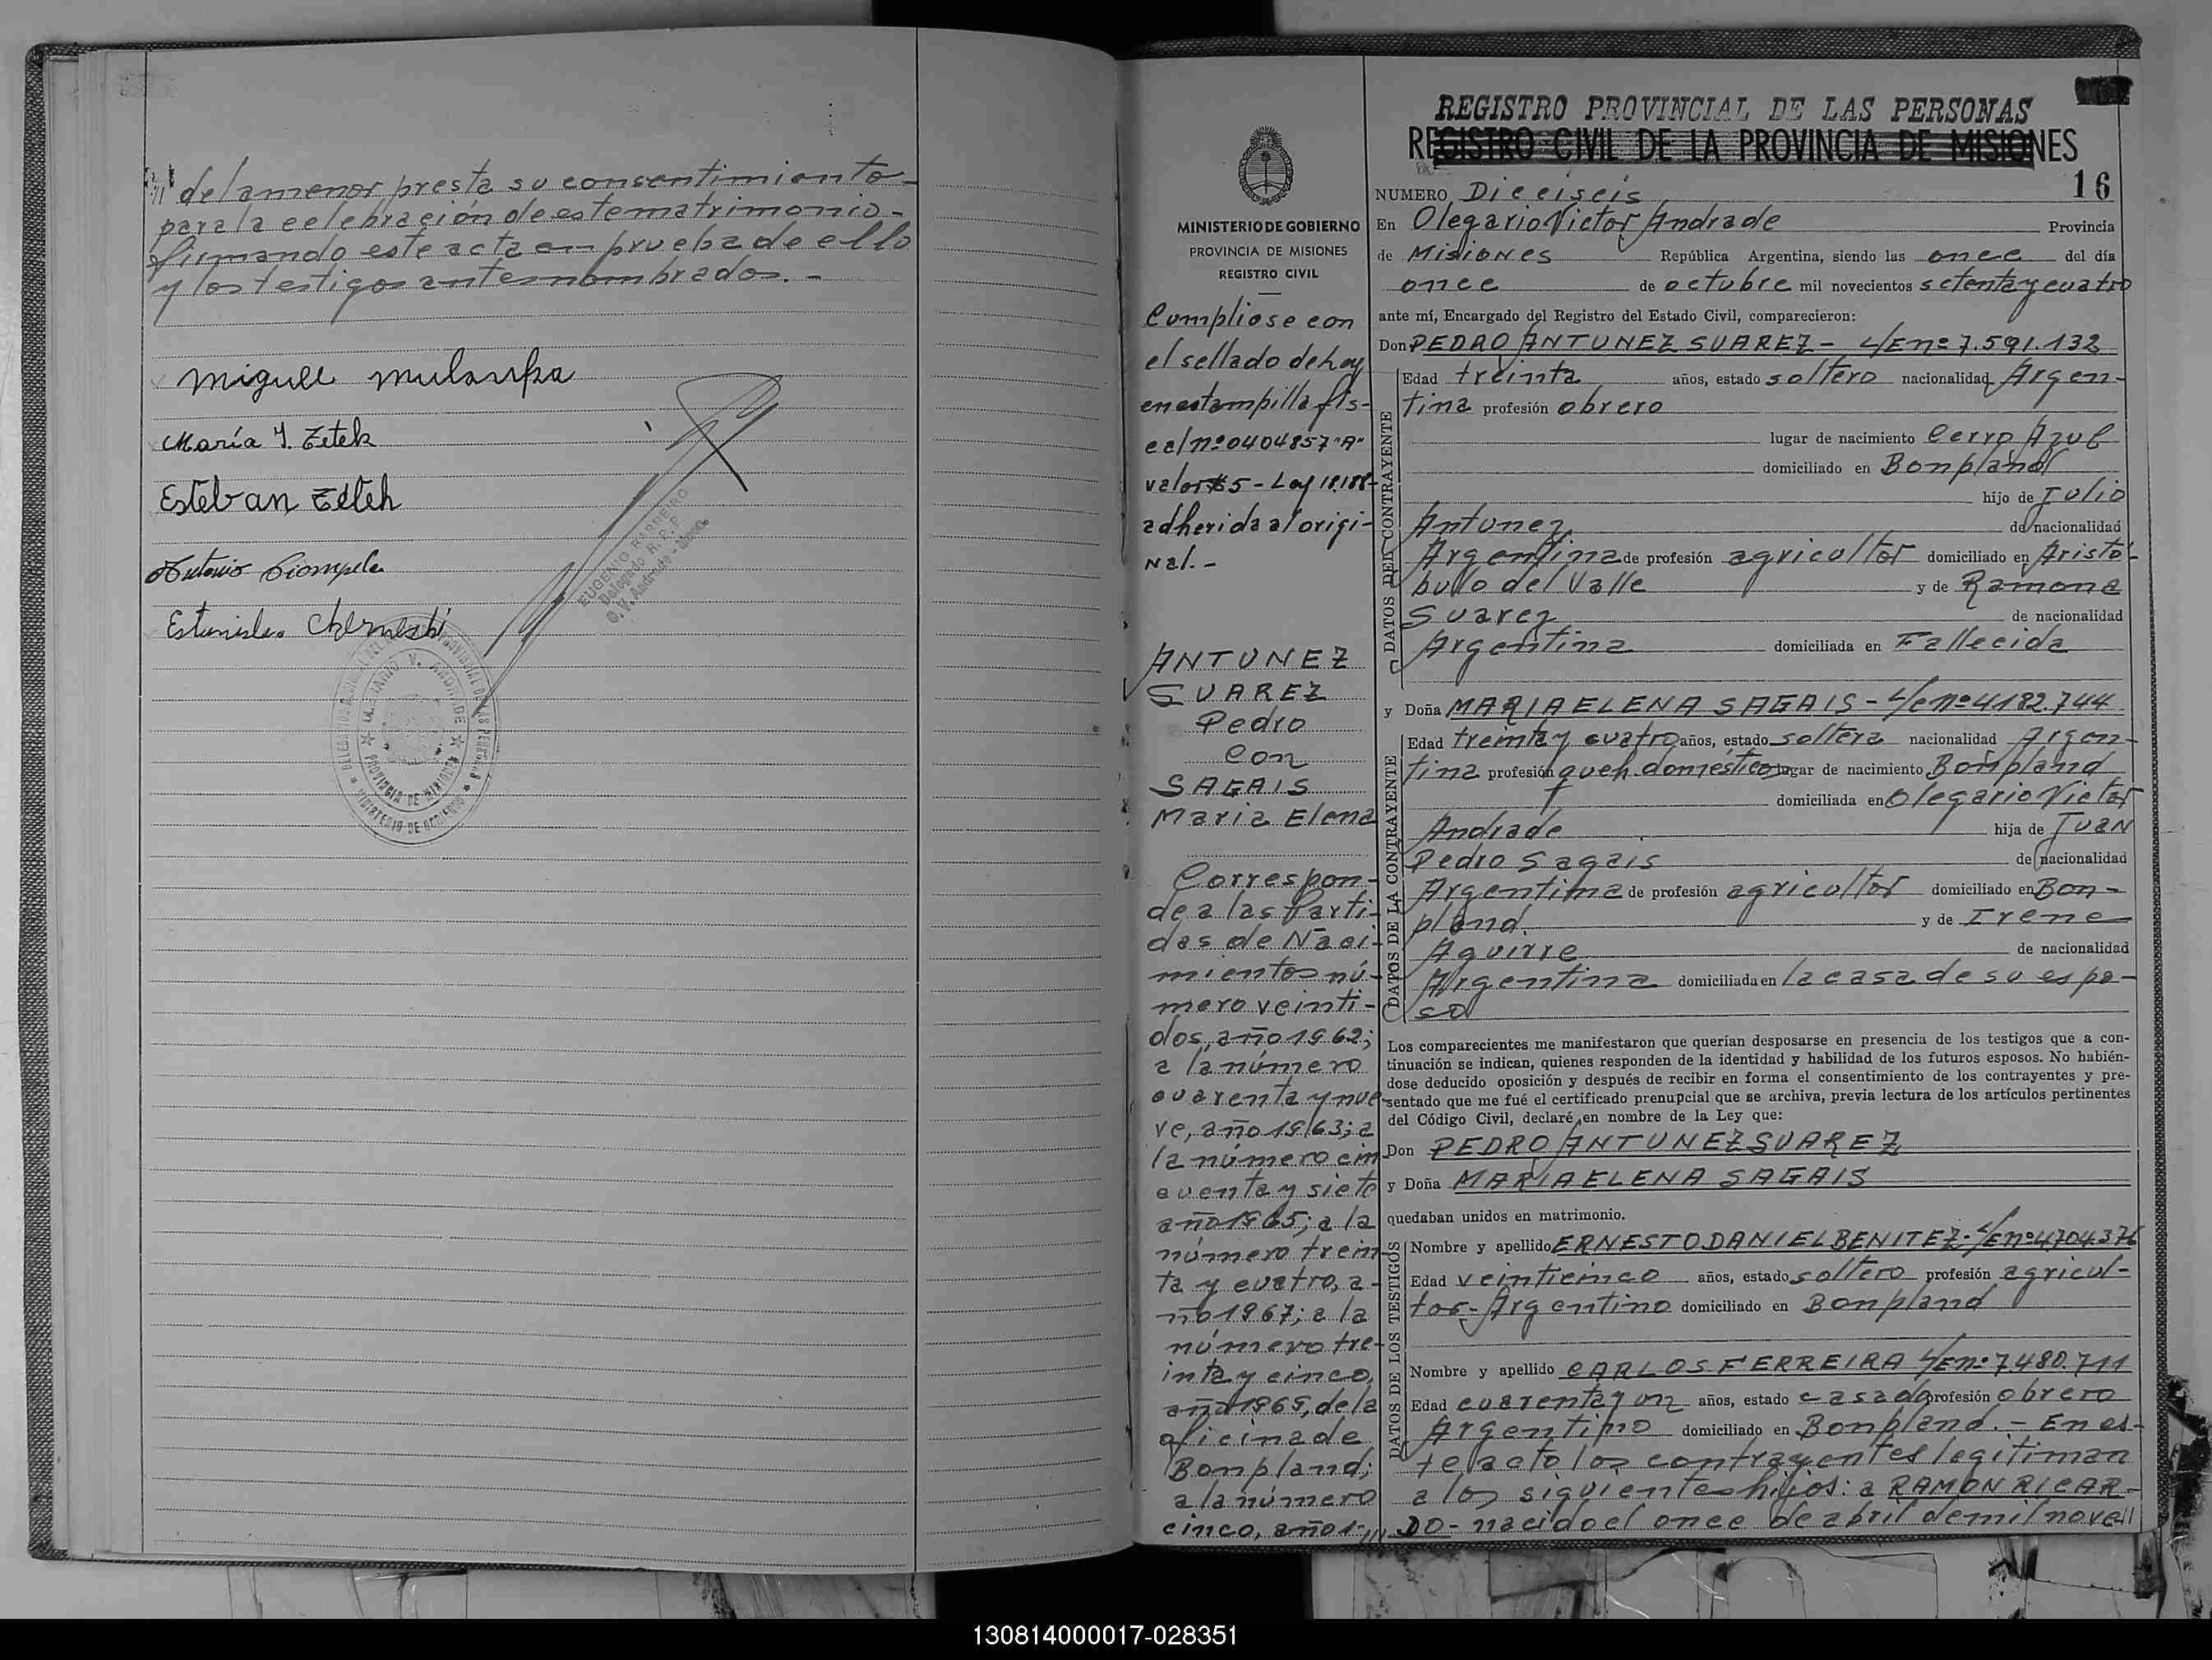 de la menor presta su consentimiento-
para la celebración de este matrimonio-
firmando este acta en prueba de ello
y los testigos antes nombrados.-
Miguel
María Y. Zetek
Esteban
Antonio
Estanislao
EUGENIO BARRERO
Delegado R.P.P.
O. V. Andrade - Mnes.
PROVINCIA DE MISIONES
MINISTERIO DE GOBIERNO
MINISTERIO DE GOBIERNO
PROVINCIA DE MISIONES
REGISTRO CIVIL
Cumpliose con
el sellado de ley
en estampilla fis-
cal nº 0404857 "A"
valor $5 - Ley 18.188-
adherida al origi-
nal.-
ANTUNEZ
SUAREZ
Pedro
con
SAGAIS
Maria Elena
Correspon-
de a las Parti-
das de Naci-
mientos nú-
mero veinti-
dos, año 1962;
a la número
cuarenta y nue-
ve, año 1963; a
la número cin
cuenta y siete
año 1965; a la
número trein-
ta y cuatro, a-
ño 1967; a la
número tre-
inta y cinco,
año 1969, de la
oficina de
Bonpland;
a la número
cinco, año 1-,,,
REGISTRO PROVINCIAL DE LAS PERSONAS
REGISTRO CIVIL DE LA PROVINCIA DE MISIONES
16
NUMERO Dieciseis
En Olegario Victor Andrade Provincia
de Misiones República Argentina, siendo las once del día
once de octubre mil novecientos setenta y cuatro
ante mí, Encargado del Registro del Estado Civil, comparecieron:
Don PEDRO ANTUNEZ SUAREZ - L/E nº 7.591.132
DATOS DEL CONTRAYENTE
Edad treinta años, estado soltero nacionalidad Argen-
tina profesión obrero
lugar de nacimiento Cerro Azul
domiciliado en Bonpland
hijo de Julio
Antunez de nacionalidad
Argentina de profesión agricultor domiciliado en Aristó-
bulo del Valle y de Ramona
Suarez de nacionalidad
Argentina domiciliada en Fallecida
y Doña MARIA ELENA SAGAIS - L/C nº 4182.744
DATOS DE LA CONTRAYENTE
Edad treinta y cuatro años, estado soltera nacionalidad Argen-
tina profesión queh. domésticos lugar de nacimiento Bonpland
domiciliada en Olegario Victor
Andrade hija de Juan
Pedro Sagais de nacionalidad
Argentina de profesión agricultor domiciliado en Bon-
pland. y de Irene
Aguirre de nacionalidad
Argentina domiciliada en la casa de su espo-
so
Los comparecientes me manifestaron que querían desposarse en presencia de los testigos que a con-
tinuación se indican, quienes responden de la identidad y habilidad de los futuros esposos. No habién-
dose deducido oposición y después de recibir en forma el consentimiento de los contrayentes y pre-
sentado que me fué el certificado prenupcial que se archiva, previa lectura de los artículos pertinentes
del Código Civil, declaré en nombre de la Ley que:
Don PEDRO ANTUNEZ SUAREZ
y Doña MARIA ELENA SAGAIS
quedaban unidos en matrimonio.
DATOS DE LOS TESTIGOS
Nombre y apellido ERNESTO DANIEL BENITEZ - L/E nº 4704376
Edad veinticinco años, estado soltero profesión agricul-
tor - Argentino domiciliado en Bonpland
Nombre y apellido CARLOS FERREIRA L/E nº 7.480.711
Edad cuarenta y un años, estado casado profesión obrero
Argentino domiciliado en Bonpland.- En es-
te acto los contrayentes legitiman
a los siguientes hijos: a RAMON RICAR-
DO- nacido el once de abril de mil nove//
130814000017-028351